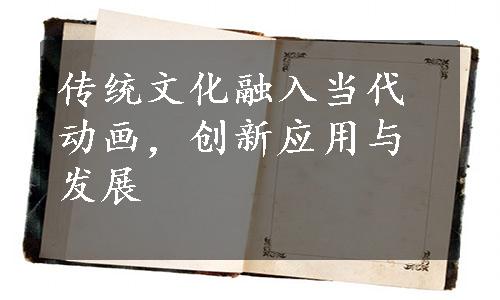 传统文化融入当代
动画，创新应用与
发展